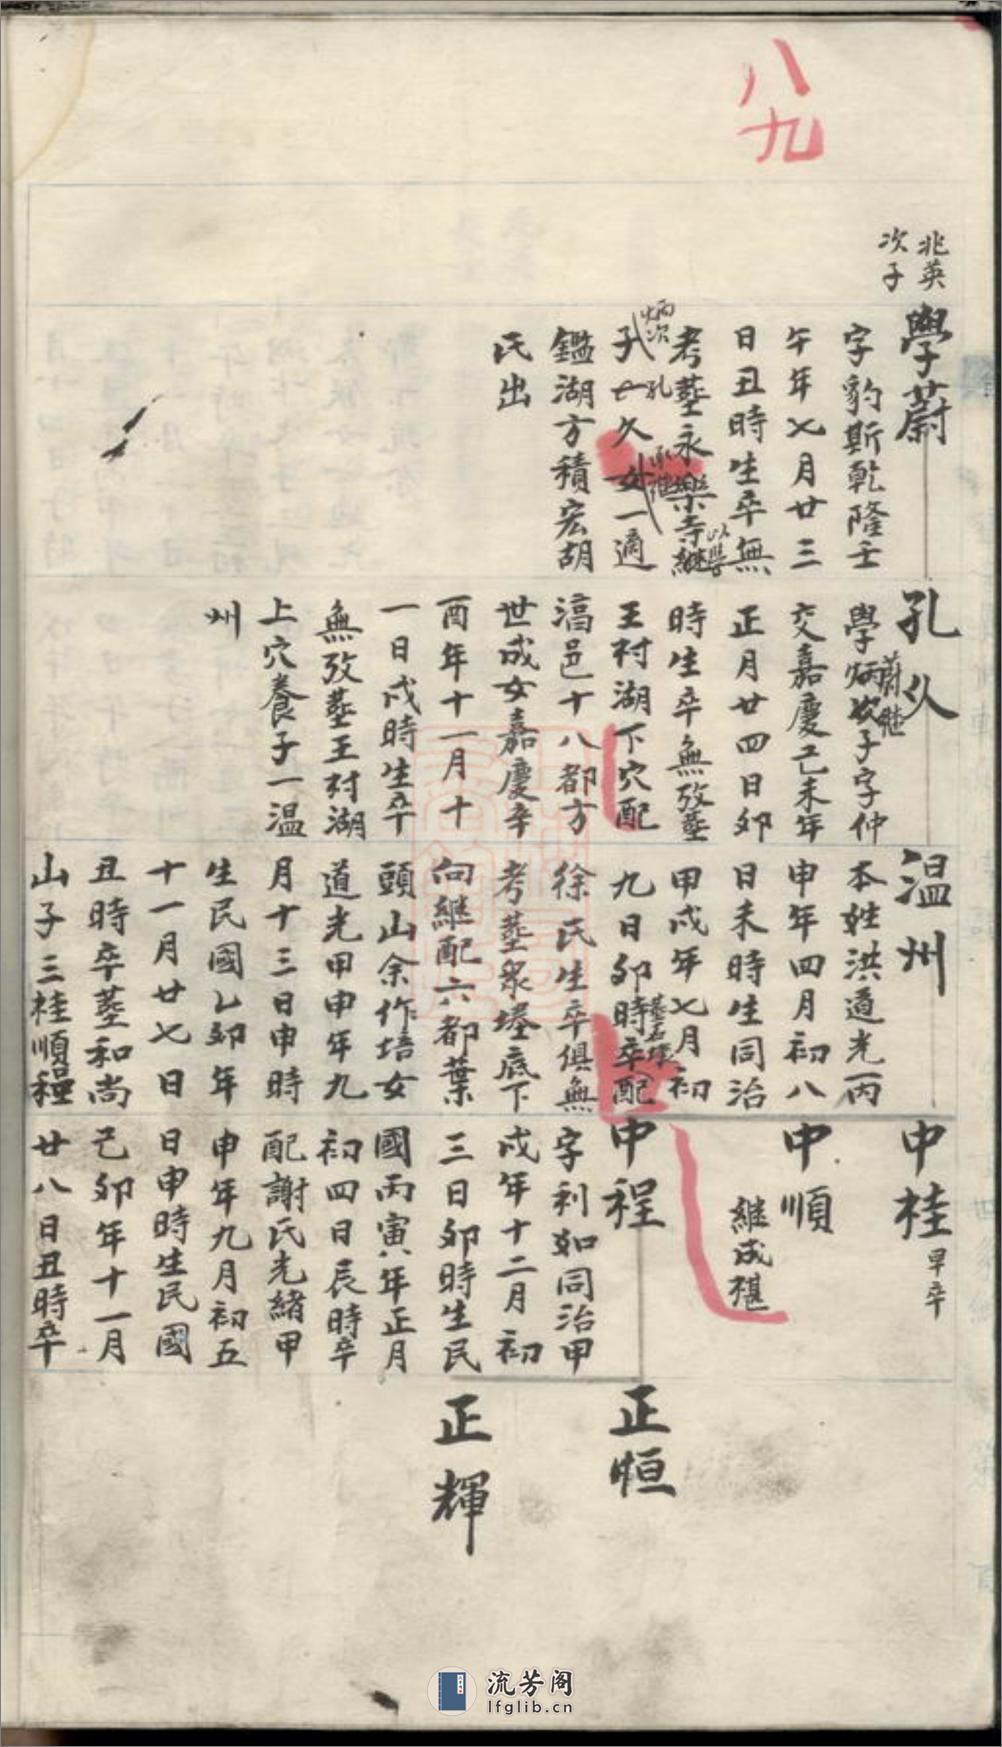 八九
兆英
次子
學蔚
字豹斯乾隆壬
午年七月廿三
日丑時生卒無
考塟永樂寺継
以學
炳次
子孔
承継
孔七久女一適
鑑湖方積宏胡
氏出
孔久
蔚継
學炳次子字仲
交嘉慶己未年
正月廿四日卯
時生卒無攷塟
王村湖下穴配
滈邑十八都方
世成女嘉慶辛
酉年十一月十
一日戌時生卒
無攷塟王村湖
上穴養子一温
州
温州
本姓洪道光丙
申年四月初八
日未時生同治
甲戌年七月初
九日卯時卒配
徐氏生卒俱無
考塟眾塋底下
向継配六都葉
頭山余作培女
道光甲申年九
月十三日申時
生民國乙卯年
十一月廿七日
丑時卒塟和尚
山子三桂順程
中桂
早卒
中順
継成祺
中程
字利如同治甲
戌年十二月初
三日卯時生民
國丙寅年正月
初四日辰時卒
配謝氏光緒甲
申年九月初五
日申時生民國
己卯年十一月
廿八日丑時卒
正恒
正輝
流芳阁
lfglib.cn